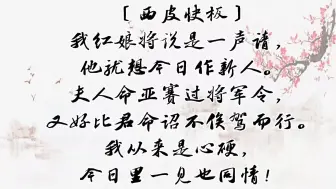 ［西皮快板］
我红娘将说是一声请，
他就想今日作新人。
夫人命亚赛过将军令，
又好比君命诏不俟驾而行。
我从来是心硬，
今日里一见也同情！